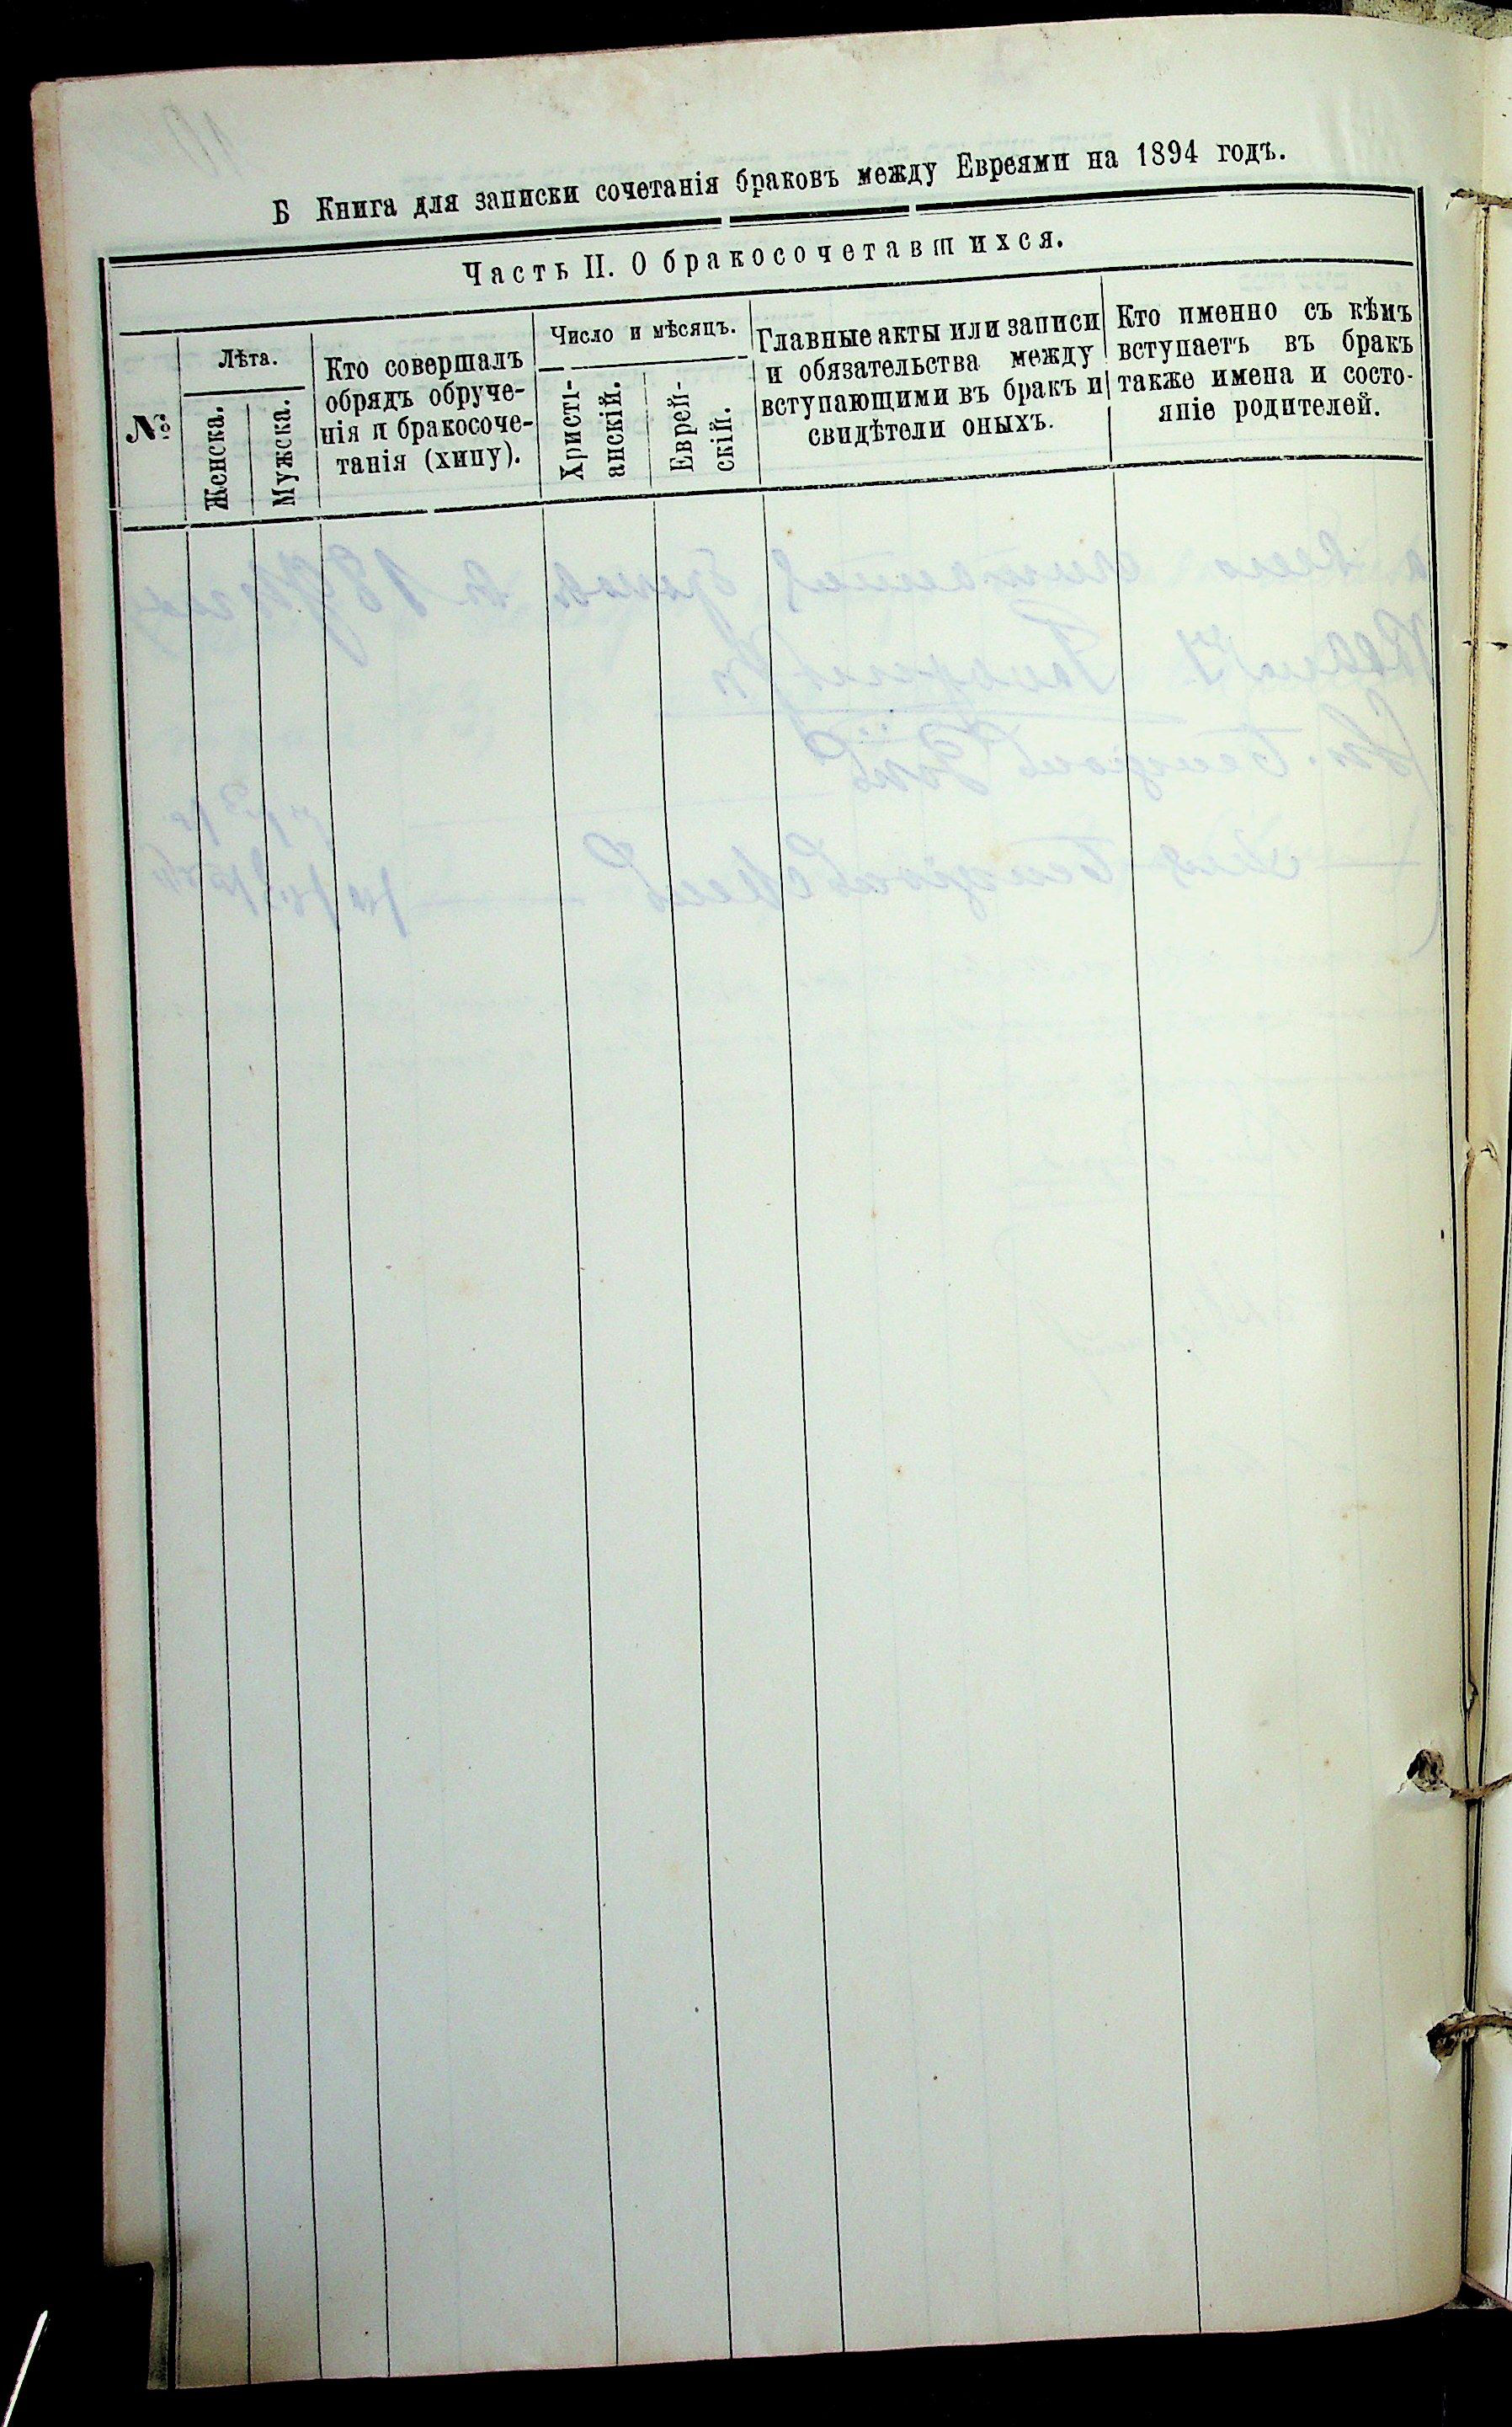 Б Книга для записки сочетанія браковъ между Евреями на 1894 годъ.
Часть II. О бракосочетавшихся.
№
Лѣта.
Женска.
Мужска.
Кто совершалъ
обрядъ обруче-
нія и бракосоче-
танія (хипу).
Число и мѣсяцъ.
Христі-
анскій.
Еврей-
скій.
Главные акты или записи
и обязательства между
вступающими въ бракъ и
свидѣтели оныхъ.
Кто именно съ кѣмъ
вступаетъ въ бракъ
также имена и состо-
яніе родителей.